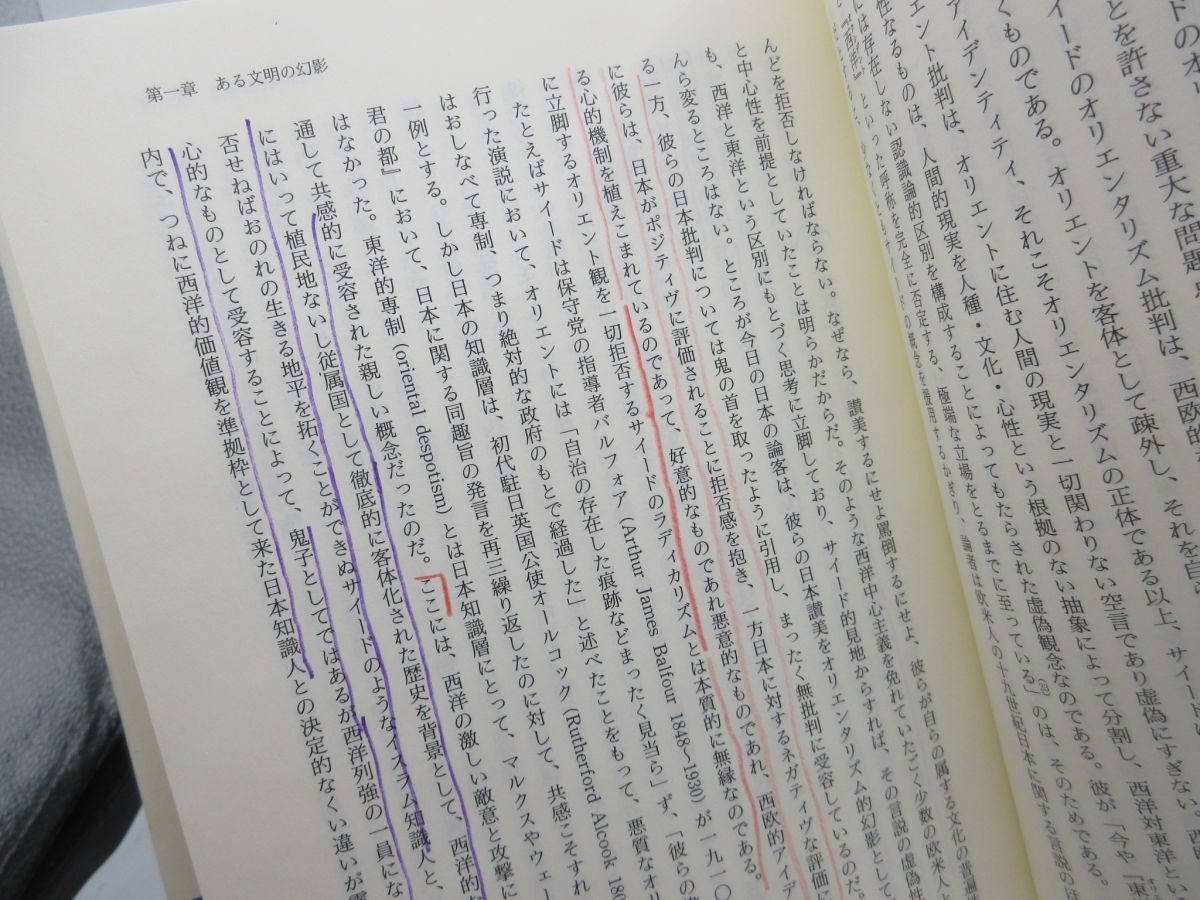 ドのオリ
とを許さない重大な問題
サイードのオリエンタリズム批判は、西欧的な
くものである。オリエントを客体として疎外し、それを自
アイデンティティ、それこそオリエンタリズムの正体である以上、サイードに
エント批判は、オリエントに住む人間の現実と一切関わりない空言であり虚偽にすぎない
性なるものは、人間的現実を人種・文化・心性という根拠のない抽象によって分割し、西洋対東洋とい
には存在しない認識論的区別を構成することによってもたらされた虚偽観念なのである。彼が「今や『東
『西洋』といった呼称を完全に否定する、極端な立場をとるまでに至っている」(23)のは、そのためである。
サイードの概念を援用するかぎり、論者は欧米人の十九世紀日本に関する言説のほ
第一章 ある文明の幻影
んどを拒否しなければならない。なぜなら、讃美するにせよ罵倒するにせよ、彼らが自らの属する文化の普遍性
と中心性を前提としていたことは明らかだからだ。そのような西洋中心主義を免れていたごく少数の欧米人と
も、西洋と東洋という区別にもとづく思考に立脚しており、サイード的見地からすれば、その言説の虚偽性
んら変るところはない。ところが今日の日本の論客は、彼らの日本讃美をオリエンタリズム的幻影として
る一方、彼らの日本批判については鬼の首を取ったように引用し、まったく無批判に受容しているのだ。
に彼らは、日本がポジティヴに評価されることに拒否感を抱き、一方日本に対するネガティヴな評価に
る心的機制を植えこまれているのであって、好意的なものであれ悪意的なものであれ、西欧的アイデ
に立脚するオリエント観を一切拒否するサイードのラディカリズムとは本質的に無縁なのである。
たとえばサイードは保守党の指導者バルフォア(Arthur James Balfour 1848~1930)が一九一〇
行った演説において、オリエントには「自治の存在した痕跡などまったく見当ら」ず、「彼らの
はおしなべて専制、つまり絶対的な政府のもとで経過した」と述べたことをもって、悪質なオリ
一例とする。しかし日本の知識層は、初代駐日英国公使オールコック(Rutherford Alcock 180
君の都』において、日本に関する同趣旨の発言を再三繰り返したのに対して、共感こそすれ
はなかった。東洋的専制(oriental despotism)とは日本知識層にとって、マルクスやウェー
通して共感的に受容された親しい概念だったのだ。ここには、西洋の激しい敵意と攻撃に
にはいって植民地ないし従属国として徹底的に客体化された歴史を背景として、西洋的な
否せねばおのれの生きる地平を拓くことができぬサイードのようなイスラム知識人と、
心的なものとして受容することによって、鬼子としてではあるが西洋列強の一員にな
内で、つねに西洋的価値観を準拠枠として来た日本知識人との決定的なくい違いが